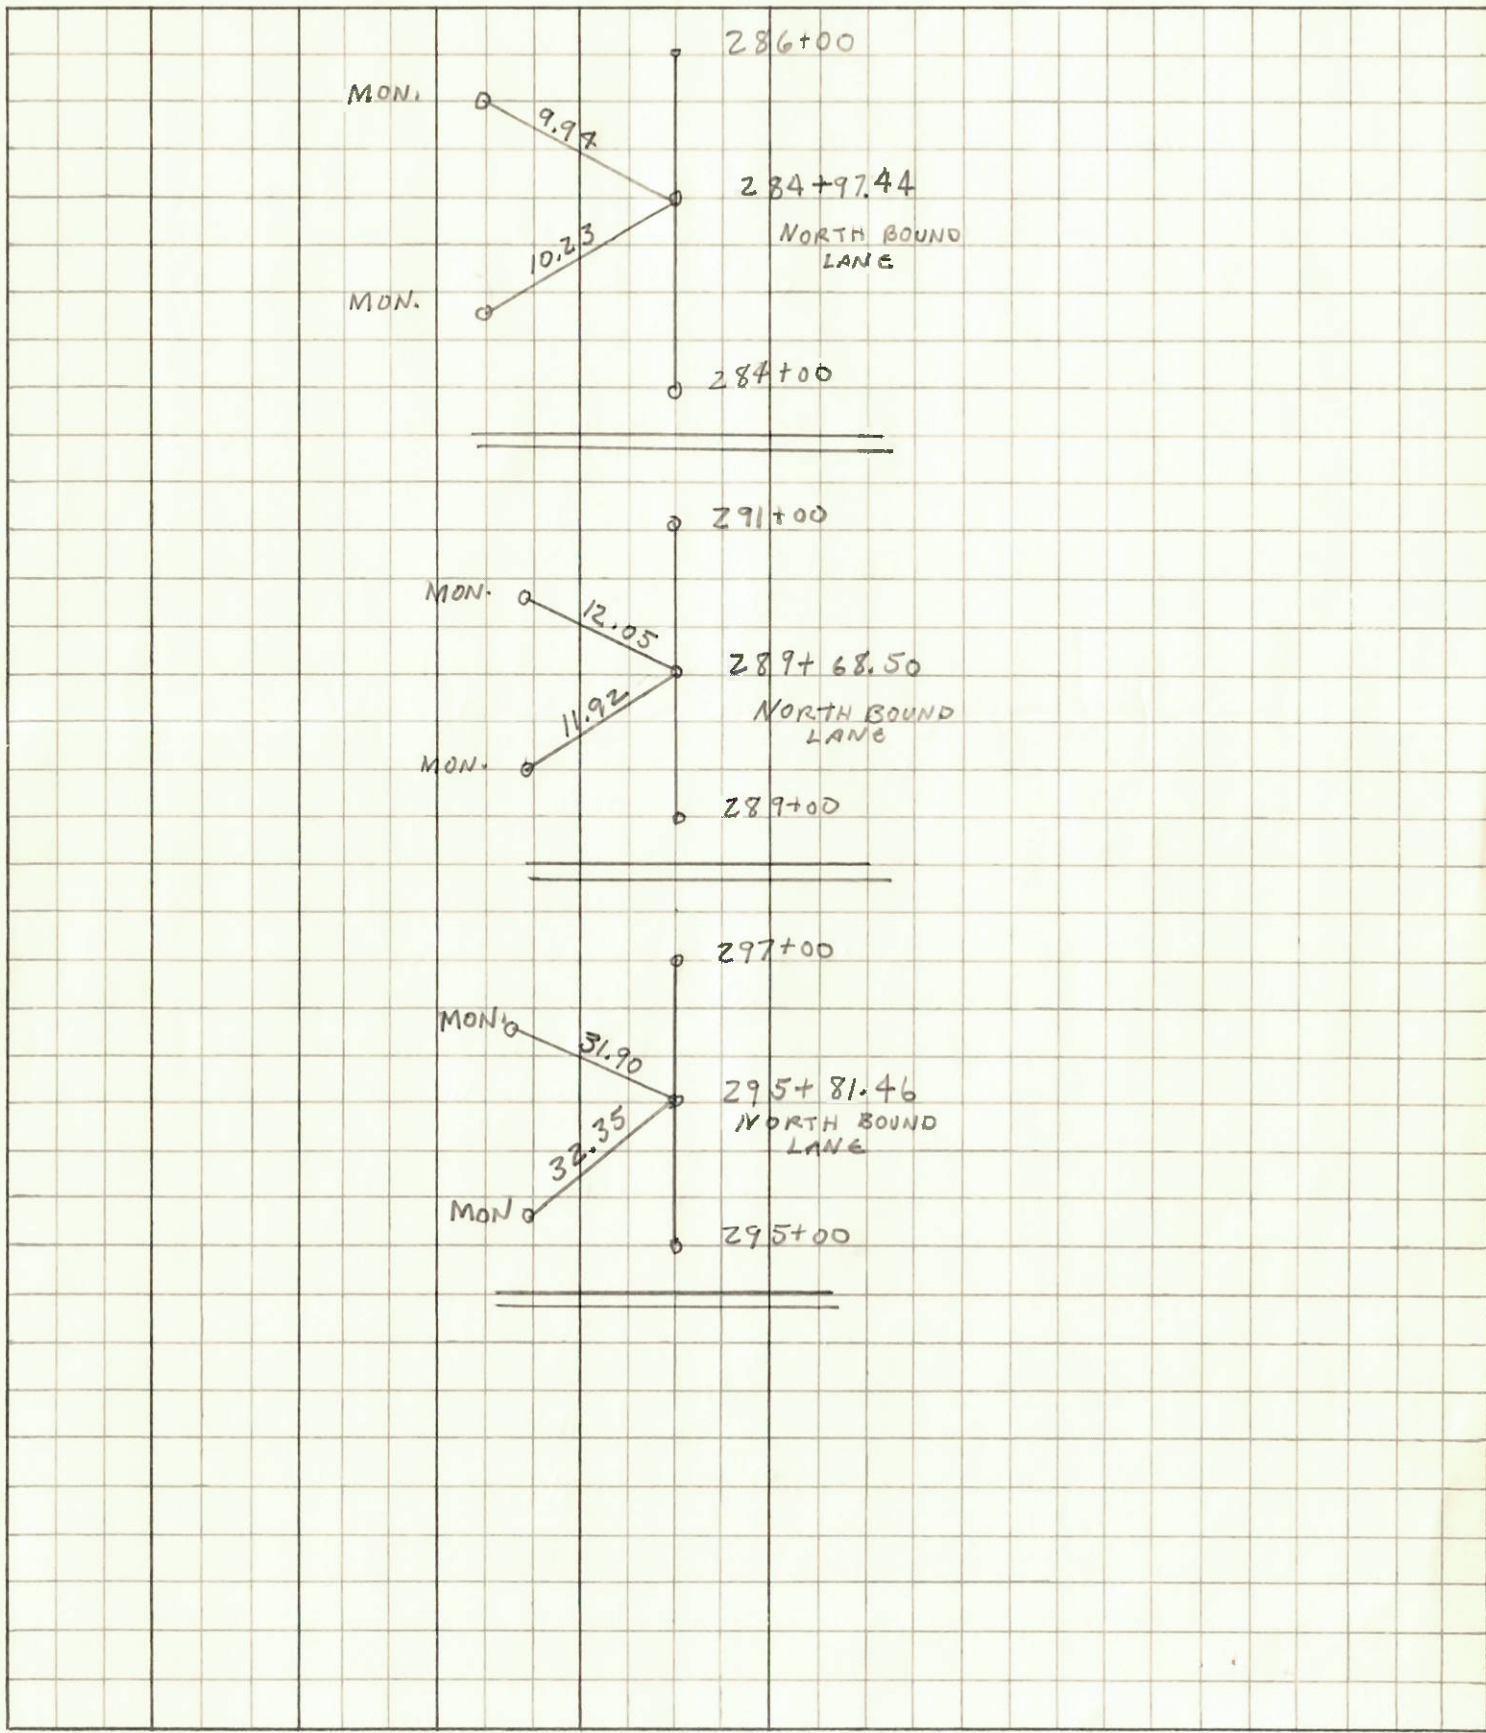 286+00
MON.
9.94
284+97.44
NORTH BOUND
LANE
10.23
MON.
284+00
291+00
MON.
12.05
289+68.50
NORTH BOUND
LANE
11.92
MON.
289+00
297+00
MON.
31.90
295+81.46
NORTH BOUND
LANE
32.35
MON
295+00